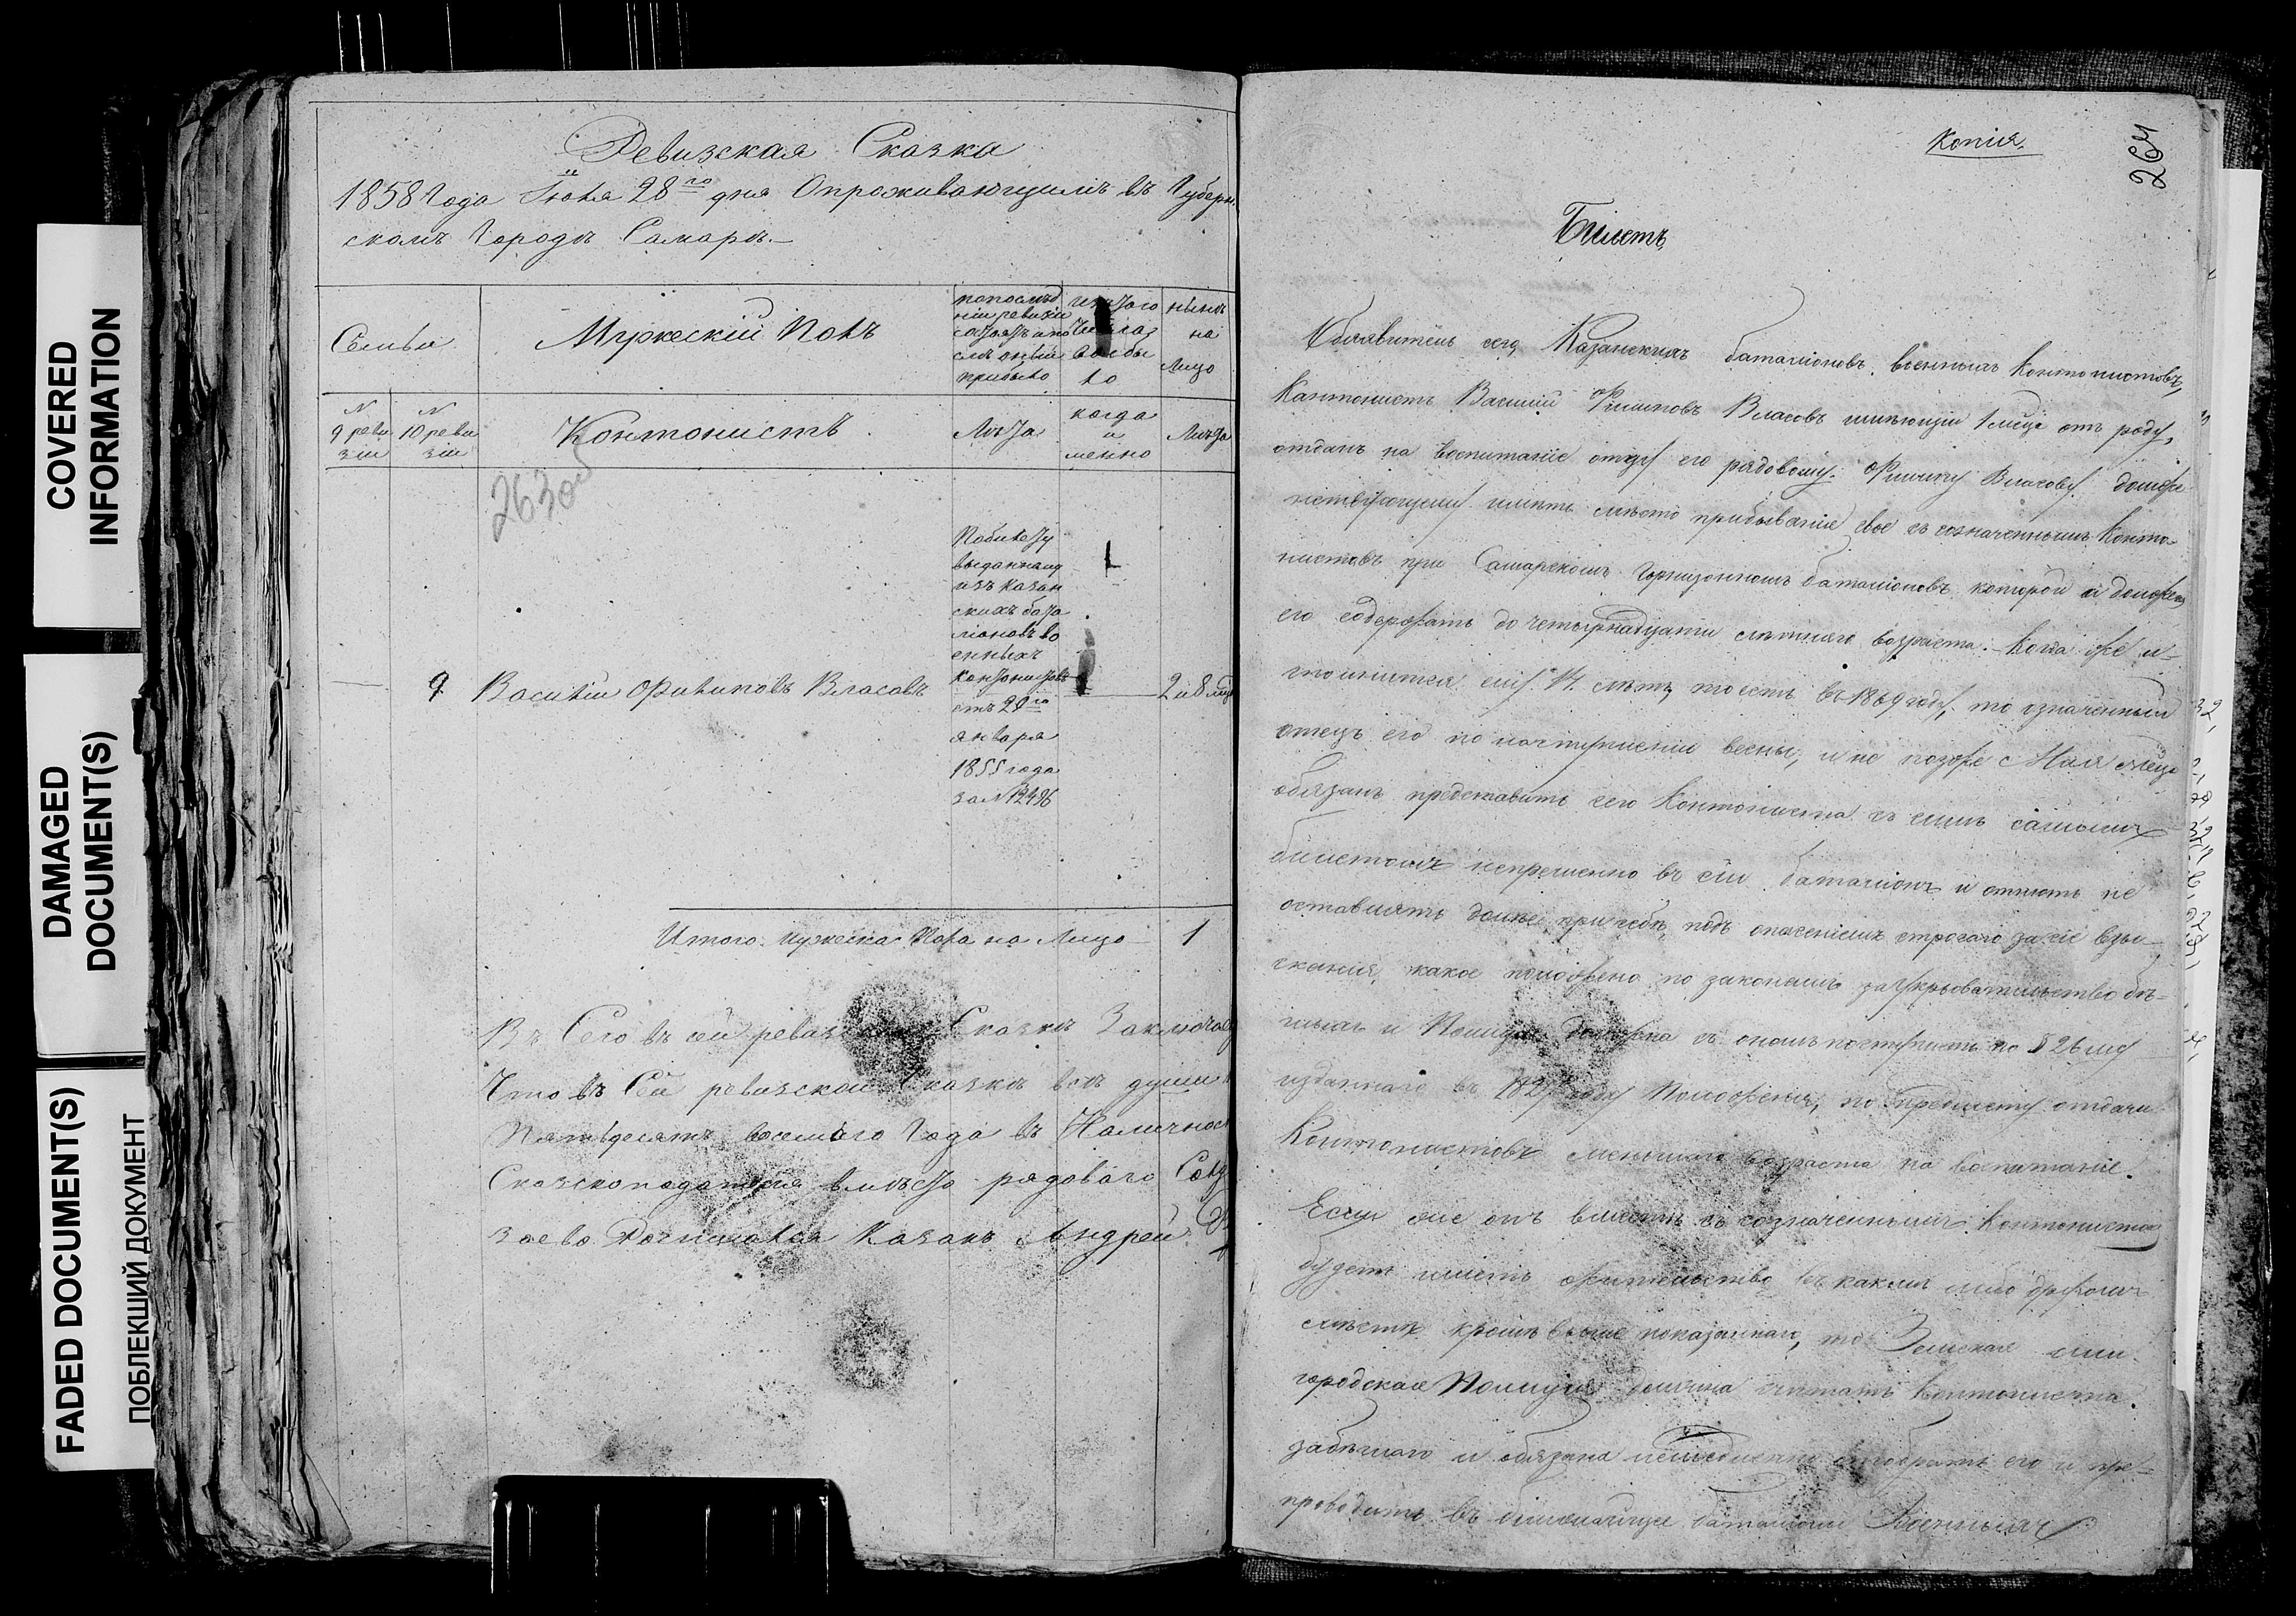 COVERED
INFORMATION
DAMAGED
DOCUMENT(S)
FADED DOCUMENT(S)
ПОБЛЕКШИЙ ДОКУМЕНТ
Ревизская Сказка
1858 Года Іюня 28го дня О проживающимъ въ Губерн
скомъ Городѣ Самарѣ
Семьи
Мужескій Полъ
по послѣд
ній ревизіи
слѣ оный
прибыло
изъ того
числа
выбы
ло
нынѣ
на
Лицо
N
9 реви
зіи
N
10 реви
зіи
Контонистъ
Лѣта
когда
и
менно
Лѣта
263 об
По билету
выданному
изъ Казан
скихъ бата
ліоновъ во
енныхъ
Контонистовъ
отъ 29го
января
1855 года
за N 12496
9 Василій Филиповъ Власовъ
2 и 8 мѣс
Итого мужеска Пола на Лицо 1
Въ Сего въ сей ревизской Сказкѣ Заключае
Что въ Сей ревизской Сказкѣ всѣ души
Пятьдесятъ восьмого Года въ Наличнос
Сказкоподателя вмѣсто рядоваго
Казакъ Андрей
Копія.
264
Билетъ
Объявитель сего, Казанскихъ баталіоновъ военныхъ Контонистовъ,
Кантонистъ Василій Филиповъ Власовъ имѣющій 1 мѣсяцъ отъ роду,
отданъ на воспитаніе отцу его рядовому Филипу Власову
имѣть мѣсто прибываніе свое съ означеннымъ Конто-
нистовъ при Самарскомъ Гарнизонномъ баталіоновъ, которой и долженъ
его содержать до четырнадцати лѣтняго возраста. Когда же и-
сполнится ему 14 лѣтъ, то есть въ 1869 году, то означенный
отецъ его по наступленіи весны, и не позже Мая мѣсяца
обязанъ представить сего Контониста съ симъ самымъ
билетомъ непременно въ сіи баталіоны и отнюдь не
оставлять долѣе при себѣ, подъ опасеніемъ строгаго за сіе взы-
сканія, какое положено по законамъ за укрывательство бѣ-
глыхъ и Полиція должна съ онымъ поступить по § 26 му
изданнаго въ 182 году Положенія, по предмету отдачи
Контонистовъ меньшаго возраста на воспитаніе.
Если же онъ вмѣстѣ съ означеннымъ Контониста
будетъ имѣть жительство въ какомъ либо другомъ
мѣстѣ кромѣ выше показаннаго, то Земская или
городская Полиція должна считать Контониста
за бѣглаго и обязана немедленно отобрать его и пре-
проводить въ ближайшіе баталіоны Военныхъ